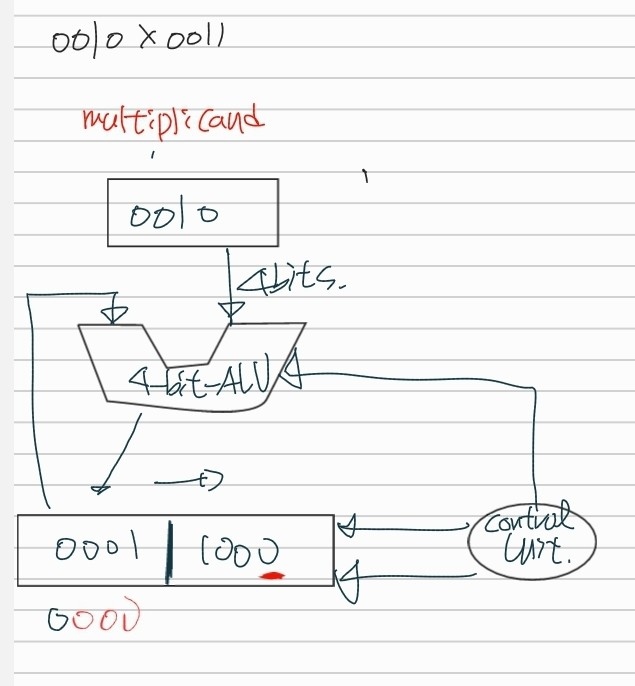 0010 × 0011
multiplicand
0010
4bits.
4-bit-ALU
0001 | 1000
control
unit.
0000